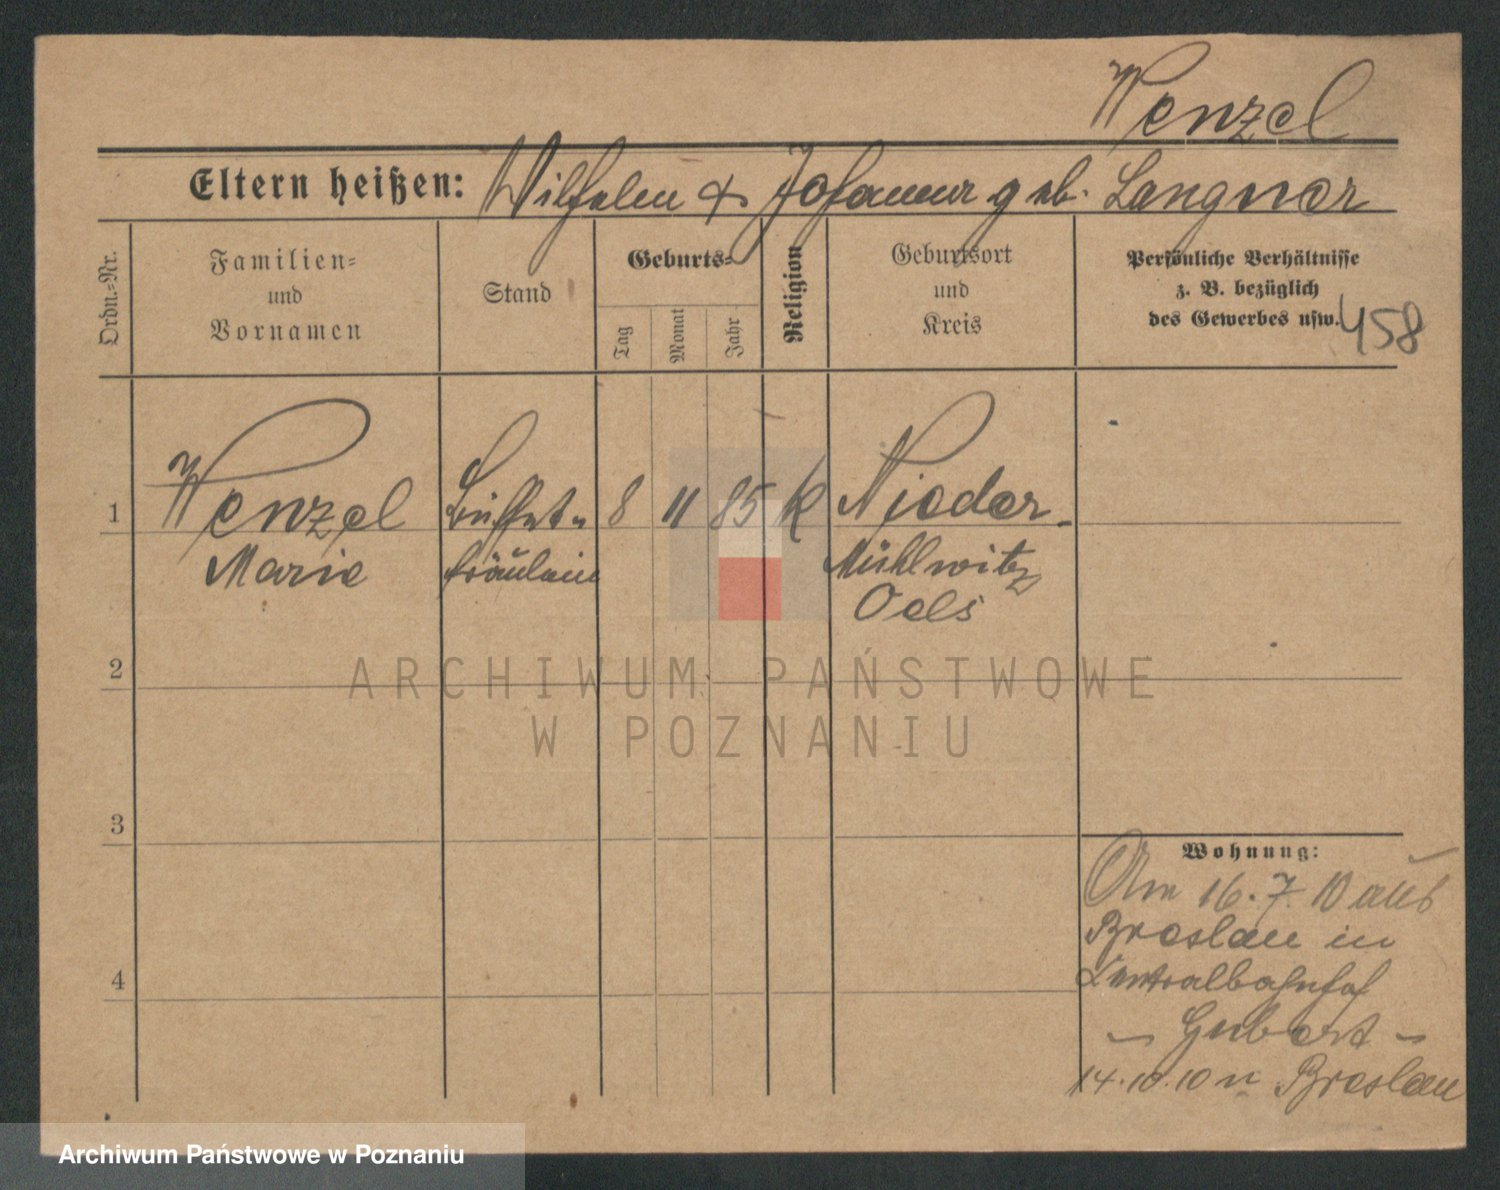 Wenzel
Eltern heißen: Wilhelm & Johanna geb. Langner
Ordn.=Nr.
Familien=
und
Vornamen
Stand
Geburts=
Tag
Monat
Jahr
Religion
Geburtsort
und
Kreis
Persönliche Verhältnisse
z. B. bezüglich
des Gewerbes usw.
458
1
Wenzel
Marie
Büffet=
fräulein
8
11
85
K
Nieder-
Mühlwitz
Oels
2
3
4
ARCHIWUM PAŃSTWOWE
W POZNANIU
Wohnung:
Am 16.7.10 aus
Breslau in
Zentralbahnhof
14.10.10 n Breslau
Archiwum Państwowe w Poznaniu